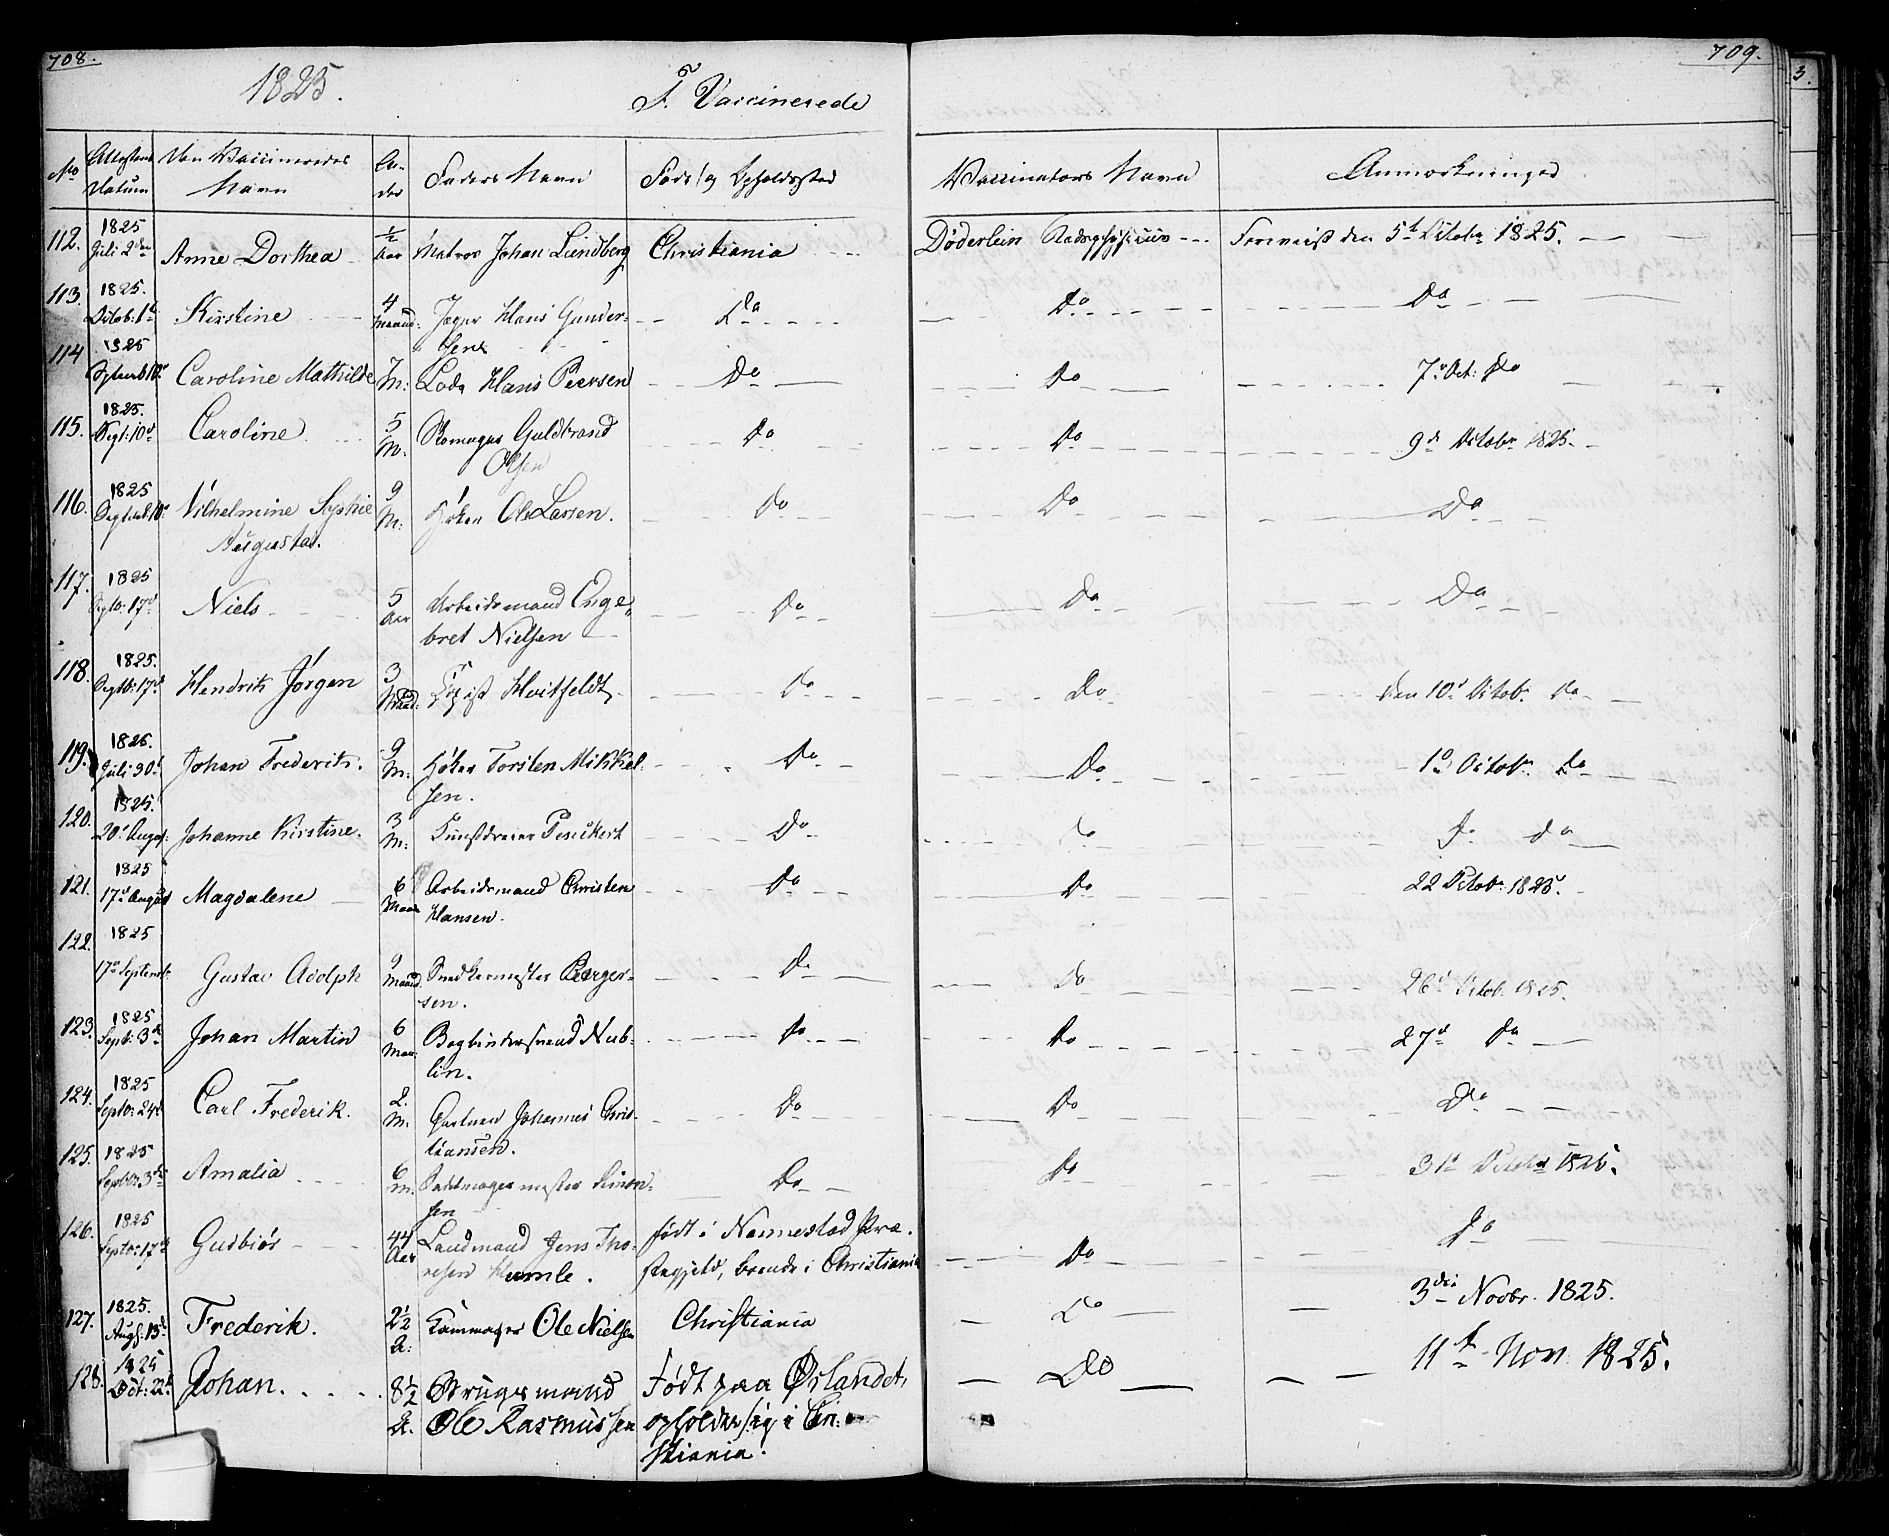 708.
709.
1825.
F. Vaccinerede
No Attestens Datum Den Vaccineredes Navn Al- der Faders Navn Føde- og Opholdssted Vaccinators Navn Anmærkninger
112. 1825 Juli 2den Anne Dorthea ½ Aar Matros Johan Lundberg Christiania Døderlein Forevist den 5t Octobr 1825.
113. 1825. Octob: 1t Kirstine 4 Maand: Jæger Hans Gunder-
sen Do Do Do
114 1825 Septemb 10d Caroline Mathilde 7 M: Lods Hans Peersen Do Do 7d Oct: Do
115. 1825. Sept: 10d Caroline 5 M. Skomager Guldbrand
Olsen Do Do 9d Octobr 1825.
116. 1825 Septemb. 10d Vilhelmine Sophie 9 M: Høker Ole Larsen. Do Do Do
Augusta.
117. 1825 Septb: 17d Niels 5 Aar Arbeidsmand Enge-
bret Nielsen Do Do Do
118. 1825. Septb: 17d Hendrik Jørgen 3 Maaned: Copist Hvitfeldt Do Do den 10d Octobr Do
119. 1825. Juli 30d Johan Frederik. 9 M: Høker Torsten Mikkel
sen. Do Do Octobr. Do
120. 1825. 20d August: Johanne Kirstine. 3 M: Kunstdreier Do Do Do Do
121. 1825 17d August Magdalene 6 Maan Arbeidsmand Christen
Hansen. Do Do 22 Octobr: 1825.
122. 1825 17de Septemb: Gustav Adolph 9 Maand Snedkermester Børger-
sen. Do Do 26d Octob. 1825.
123. 1825 Sept: 3d Johan Martin 6 Maan: Bogbindersvend Nub-
lin. Do Do 27d Do
124. 1825 Septbr: 24d Carl Frederik. 2. M. Gartner Johannes Chris-
tiansen. Do Do Do
125. 1825 Septbr: 3d Amalia 6 m. Sadelmagermester Simon-
sen Do Do 31t Octobr 1825.
126. 1825 Septbr: 17d Gudbiør 44 Aar Landmand Jens Tho-
resen Humle. født i Nannestad Præ-
stegjeld, boende i Christiania Do Do
127. 1825. Augs: 13d Frederik. 2½ A: Kammager Ole Nielsen Christiania Do 3die Novbr. 1825.
128. 1825 Oct: 22d Johan. 8½ A. Brugsmand
Ole Rasmussen Født paa Ørlandet,
opholder sig i Chri-
stiania. Do 11t Nov 1825.